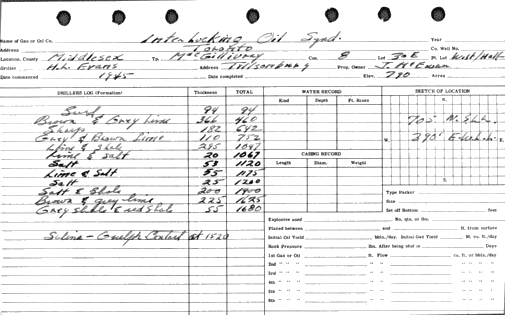 Name of Gas or Oil Co. Interlocking Oil Synd. Year
Address Toronto Co. Well No.
Location, County Middlesex Tp. McGillivray Con. 8 Lot 30 E Pt. Lot West/Half
Driller H.L. Evans Address Tillsonburg Prop. Owner J. McEwan
Date commenced 1945 Date completed Elev. 790 Acres
DRILLERS LOG (Formation) Thickness TOTAL WATER RECORD SKETCH OF LOCATION
Kind Depth Ft. Rises N.
Surf 94 94
Brown & Grey Lime 366 460 705' N.
Sharp 182 642
Grey & Brown Lime 110 752 W. 390' E.
Lime & Shale 295 1047
Lime & Salt 20 1067 CASING RECORD
Salt 53 1120 Length Diam. Weight
Lime & Salt 55 1175
Salt 25 1200 S.
Salt & Shale 200 1400 Type Packer
Brown & grey lime 225 1625 Size
Grey shale & red shale 55 1680 Set off Bottom feet
Explosive used No. qts. or lbs.
Placed between and ft. from surface
Salina - Guelph Contact at 1520 Initial Oil Yield bbls./day. Initial Gas Yield M. cu. ft./day
Rock Pressure lbs. After being shut in Days
1st Gas or Oil ft. Flow cu. ft. or bbls./day
2nd " " " " " "
3rd " " " " " "
4th " " " " " "
5th " " " " " "
6th " " " " " "